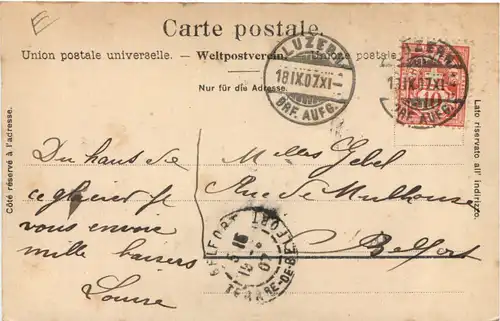 E
Carte postale.
Union postale universelle. – Weltpostverein – Unione postale
Nur für die Adresse.
LUZERN
18.IX.07.XI-
BRF. AUFG.
LUZERN
IX.07.XI-
BRF. AUFG.
10
Côté réservé à l'adresse.
Lato riservato all' indirizzo.
Du haut de
ce glacier je
vous envoie
mille baisers
Louise
Melles Gebel
Rue de Mulhouse
Belfort
BELFORT
07
TERRRE-DE-BELFORT